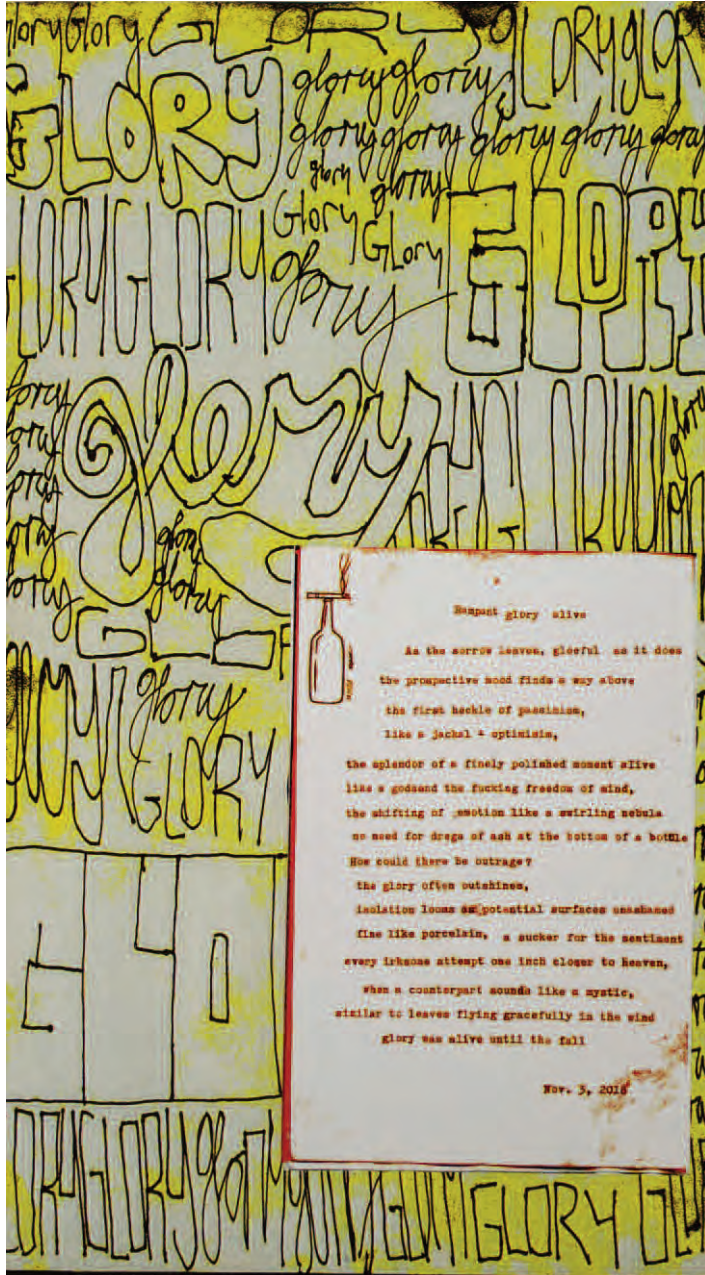 glory Glory GLORY GLORY GLOR
GLORY glory glory
glory glory glory glory glory
glory glory
Glory
GLORY GLORY Glory glory GLORY
glory
glory
glory
glory
glory
glory
glory
glory
glory
glory
glory
GLORY
GLO
GLORY GLORY glory GLORY
Rampant glory alive
As the sorrow leaves, gleeful as it does
the prospective mood finds a way above
the first heckle of pessimism,
like a jackal - optimisim,
the splendor of a finely polished moment alive
like a godsend the fucking freedom of mind,
the shifting of emotion like a swirling nebula
no need for dregs of ash at the bottom of a bottle
How could there be outrage?
the glory often outshines,
isolation looms potential surfaces unashamed
fine like porcelain, a sucker for the sentiment
every irksome attempt one inch closer to heaven,
when a counterpart sounds like a mystic,
similar to leaves flying gracefully in the wind
glory was alive until the fall
Nov. 3, 2018